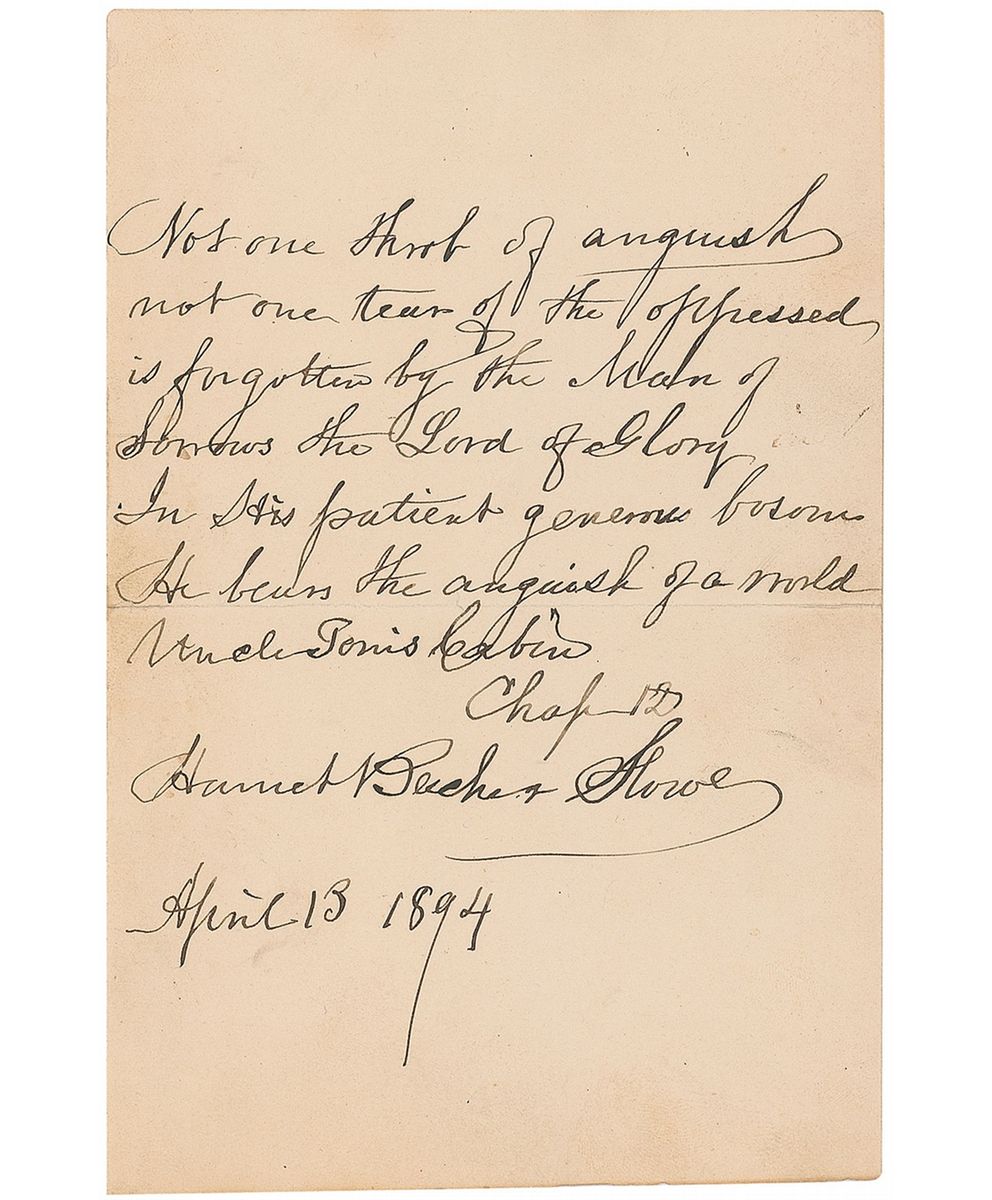 Not one throb of anguish
not one tear of the oppressed
is forgotten by the Man of
Sorrows the Lord of Glory
In His patient generous bosom
He bears the anguish of a world
Uncle Tom's Cabin
Chap 12
Harriet Beecher Stowe
April 13 1894